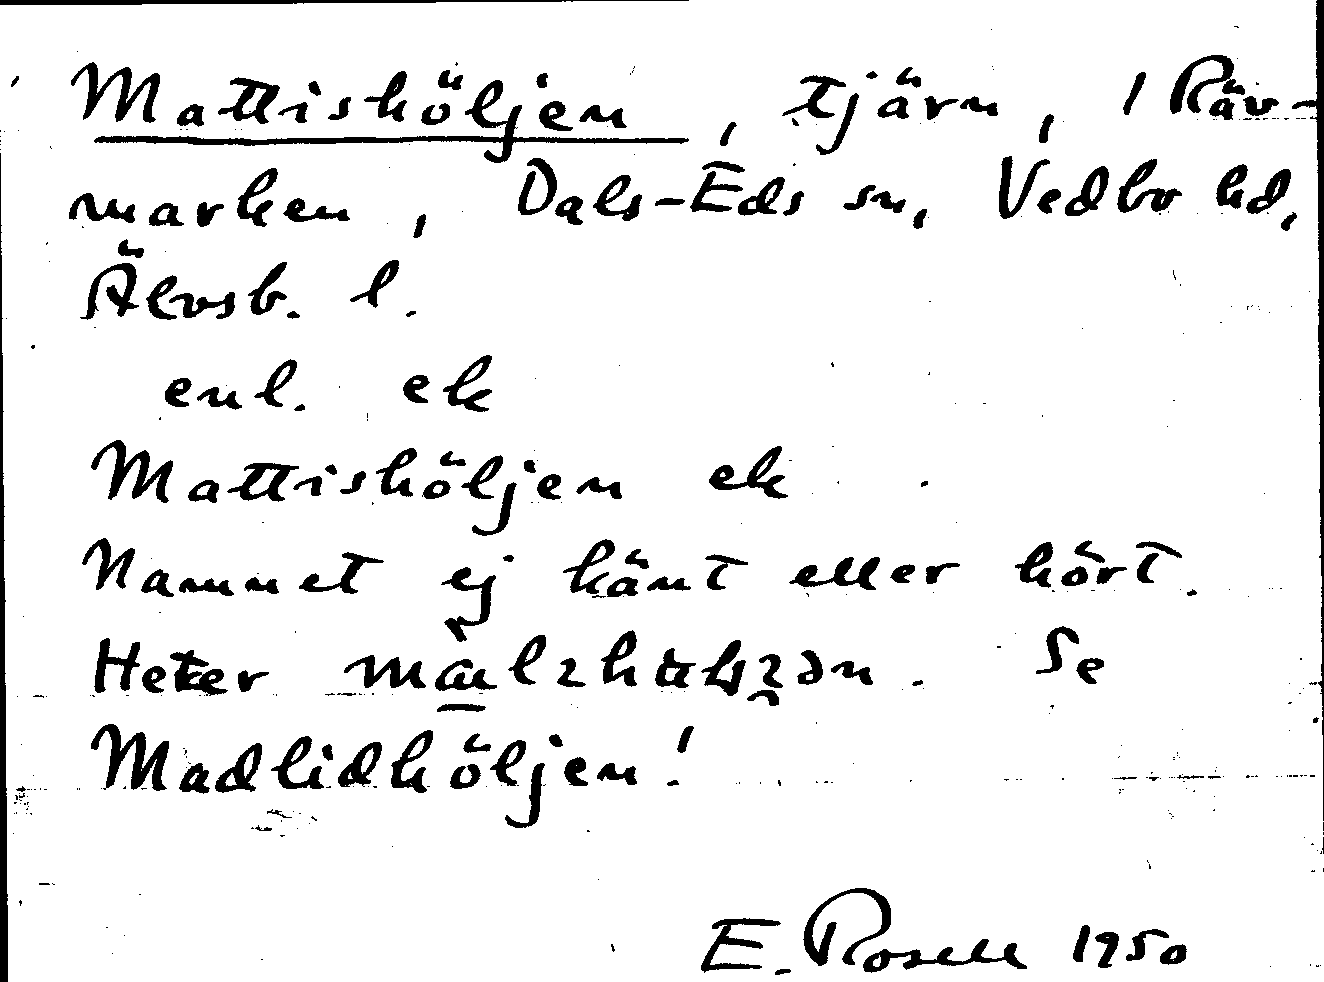 Mattishöljen, tjärn, 1 Räv-
marken, Dals-Eds sn, Vedbo hd,
Älvsb. l.
enl. ek
Mattishöljen ek
Namnet ej känt eller hört.
Heter Se
Madlidhöljen!
E. Rosell 1950